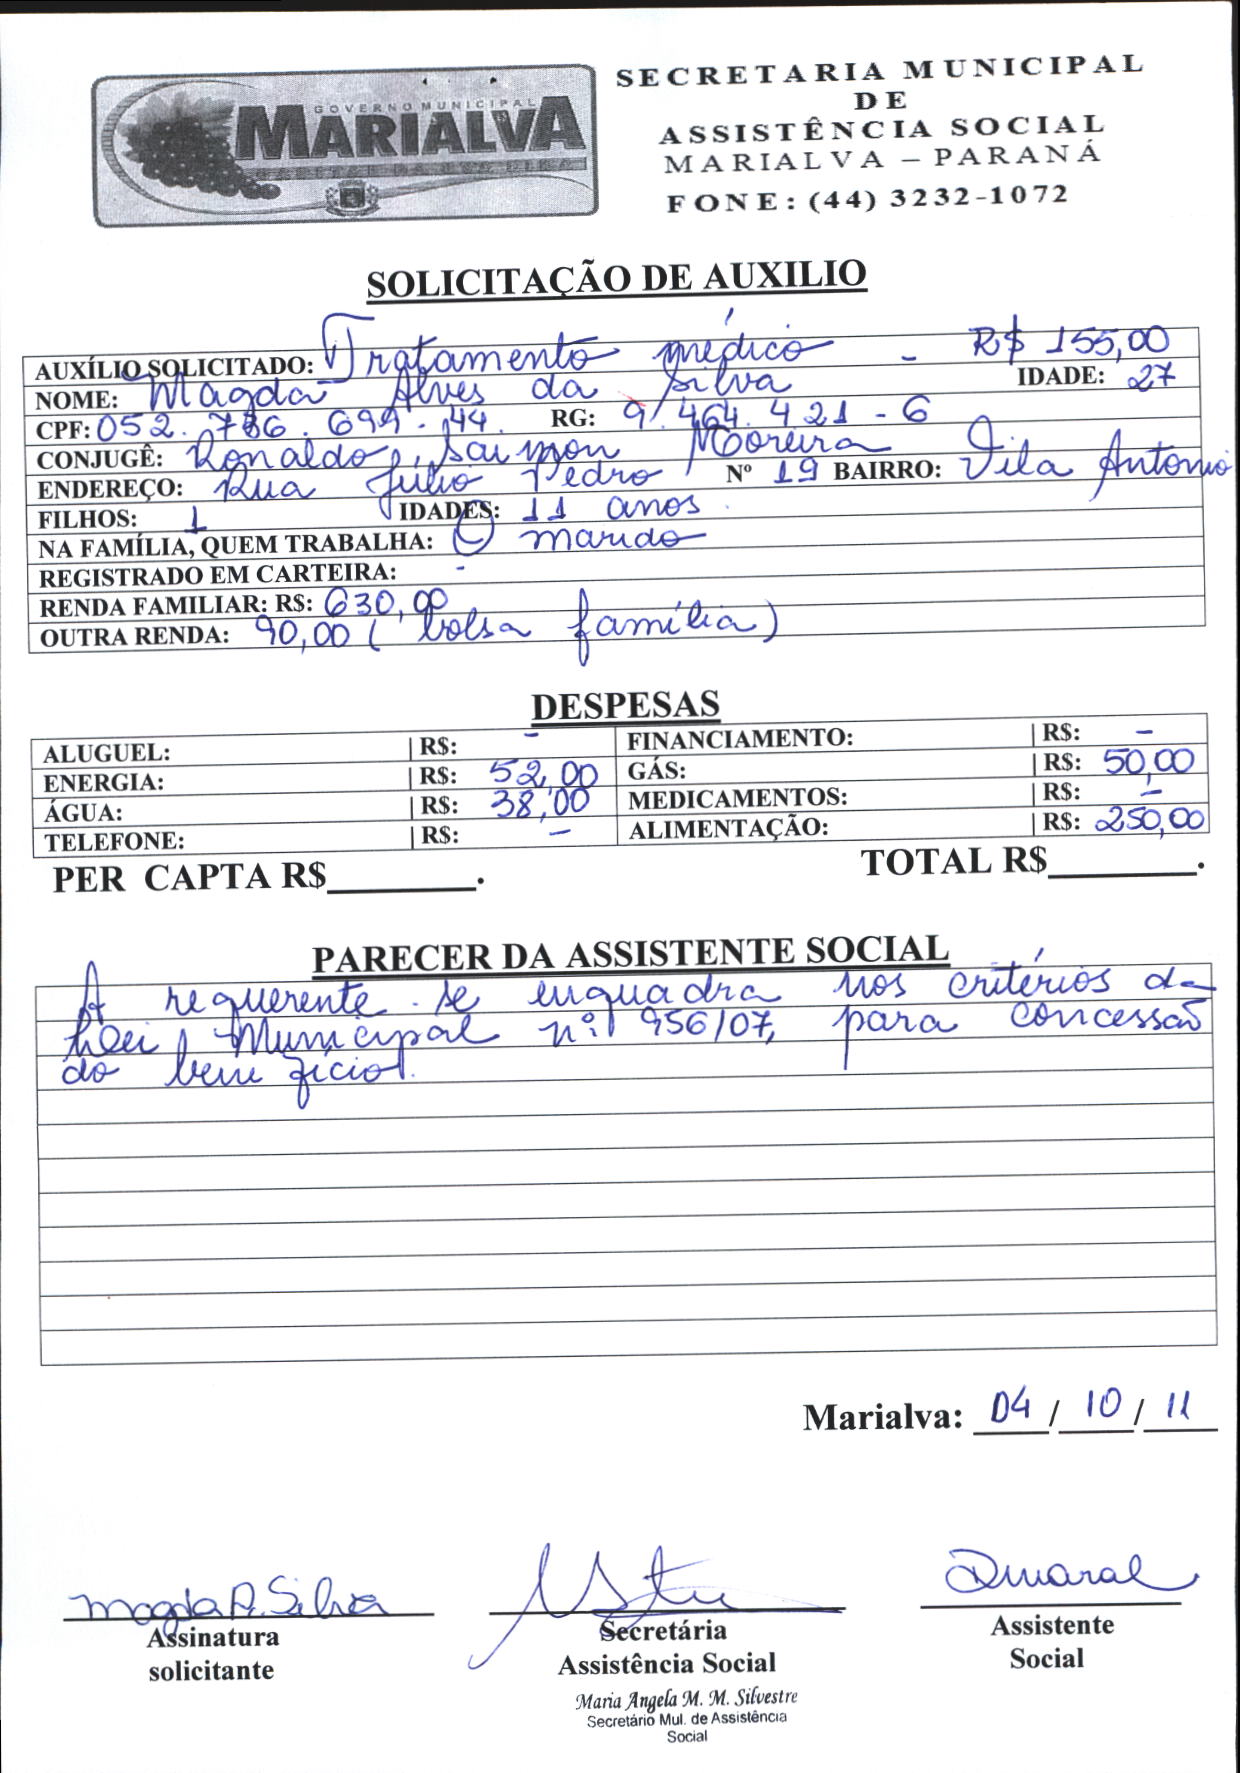 GOVERNO MUNICIPAL
MARIALVA
CAPITAL DA UVA FINA
SECRETARIA MUNICIPAL
DE
ASSISTÊNCIA SOCIAL
MARIALVA – PARANÁ
FONE: (44) 3232-1072
SOLICITAÇÃO DE AUXILIO
AUXÍLIO SOLICITADO: Tratamento médico - R$ 155,00
NOME: Magda Alves da Silva IDADE: 27
CPF: 052.786.699-44 RG: 9.464.421-6
CONJUGÊ: Ronaldo Saimon Moreira
ENDEREÇO: Rua Júlio Pedro Nº 19 BAIRRO: Vila Antonio
FILHOS: 1 IDADES: 11 anos.
NA FAMÍLIA, QUEM TRABALHA: O marido
REGISTRADO EM CARTEIRA: -
RENDA FAMILIAR: R$: 630,00
OUTRA RENDA: 90,00 (bolsa família)
DESPESAS
ALUGUEL: R$: - FINANCIAMENTO: R$: -
ENERGIA: R$: 52,00 GÁS: R$: 50,00
ÁGUA: R$: 38,00 MEDICAMENTOS: R$: -
TELEFONE: R$: - ALIMENTAÇÃO: R$: 250,00
PER CAPTA R$________. TOTAL R$________.
PARECER DA ASSISTENTE SOCIAL
A requerente se enquadra nos critérios da
Lei Municipal nº 956/07, para concessão
do benefício.
Marialva: 04 / 10 / 11
Magda A. Silva
Assinatura
solicitante
Secretária
Assistência Social
Maria Angela M. M. Silvestre
Secretário Mul. de Assistência
Social
Amaral
Assistente
Social